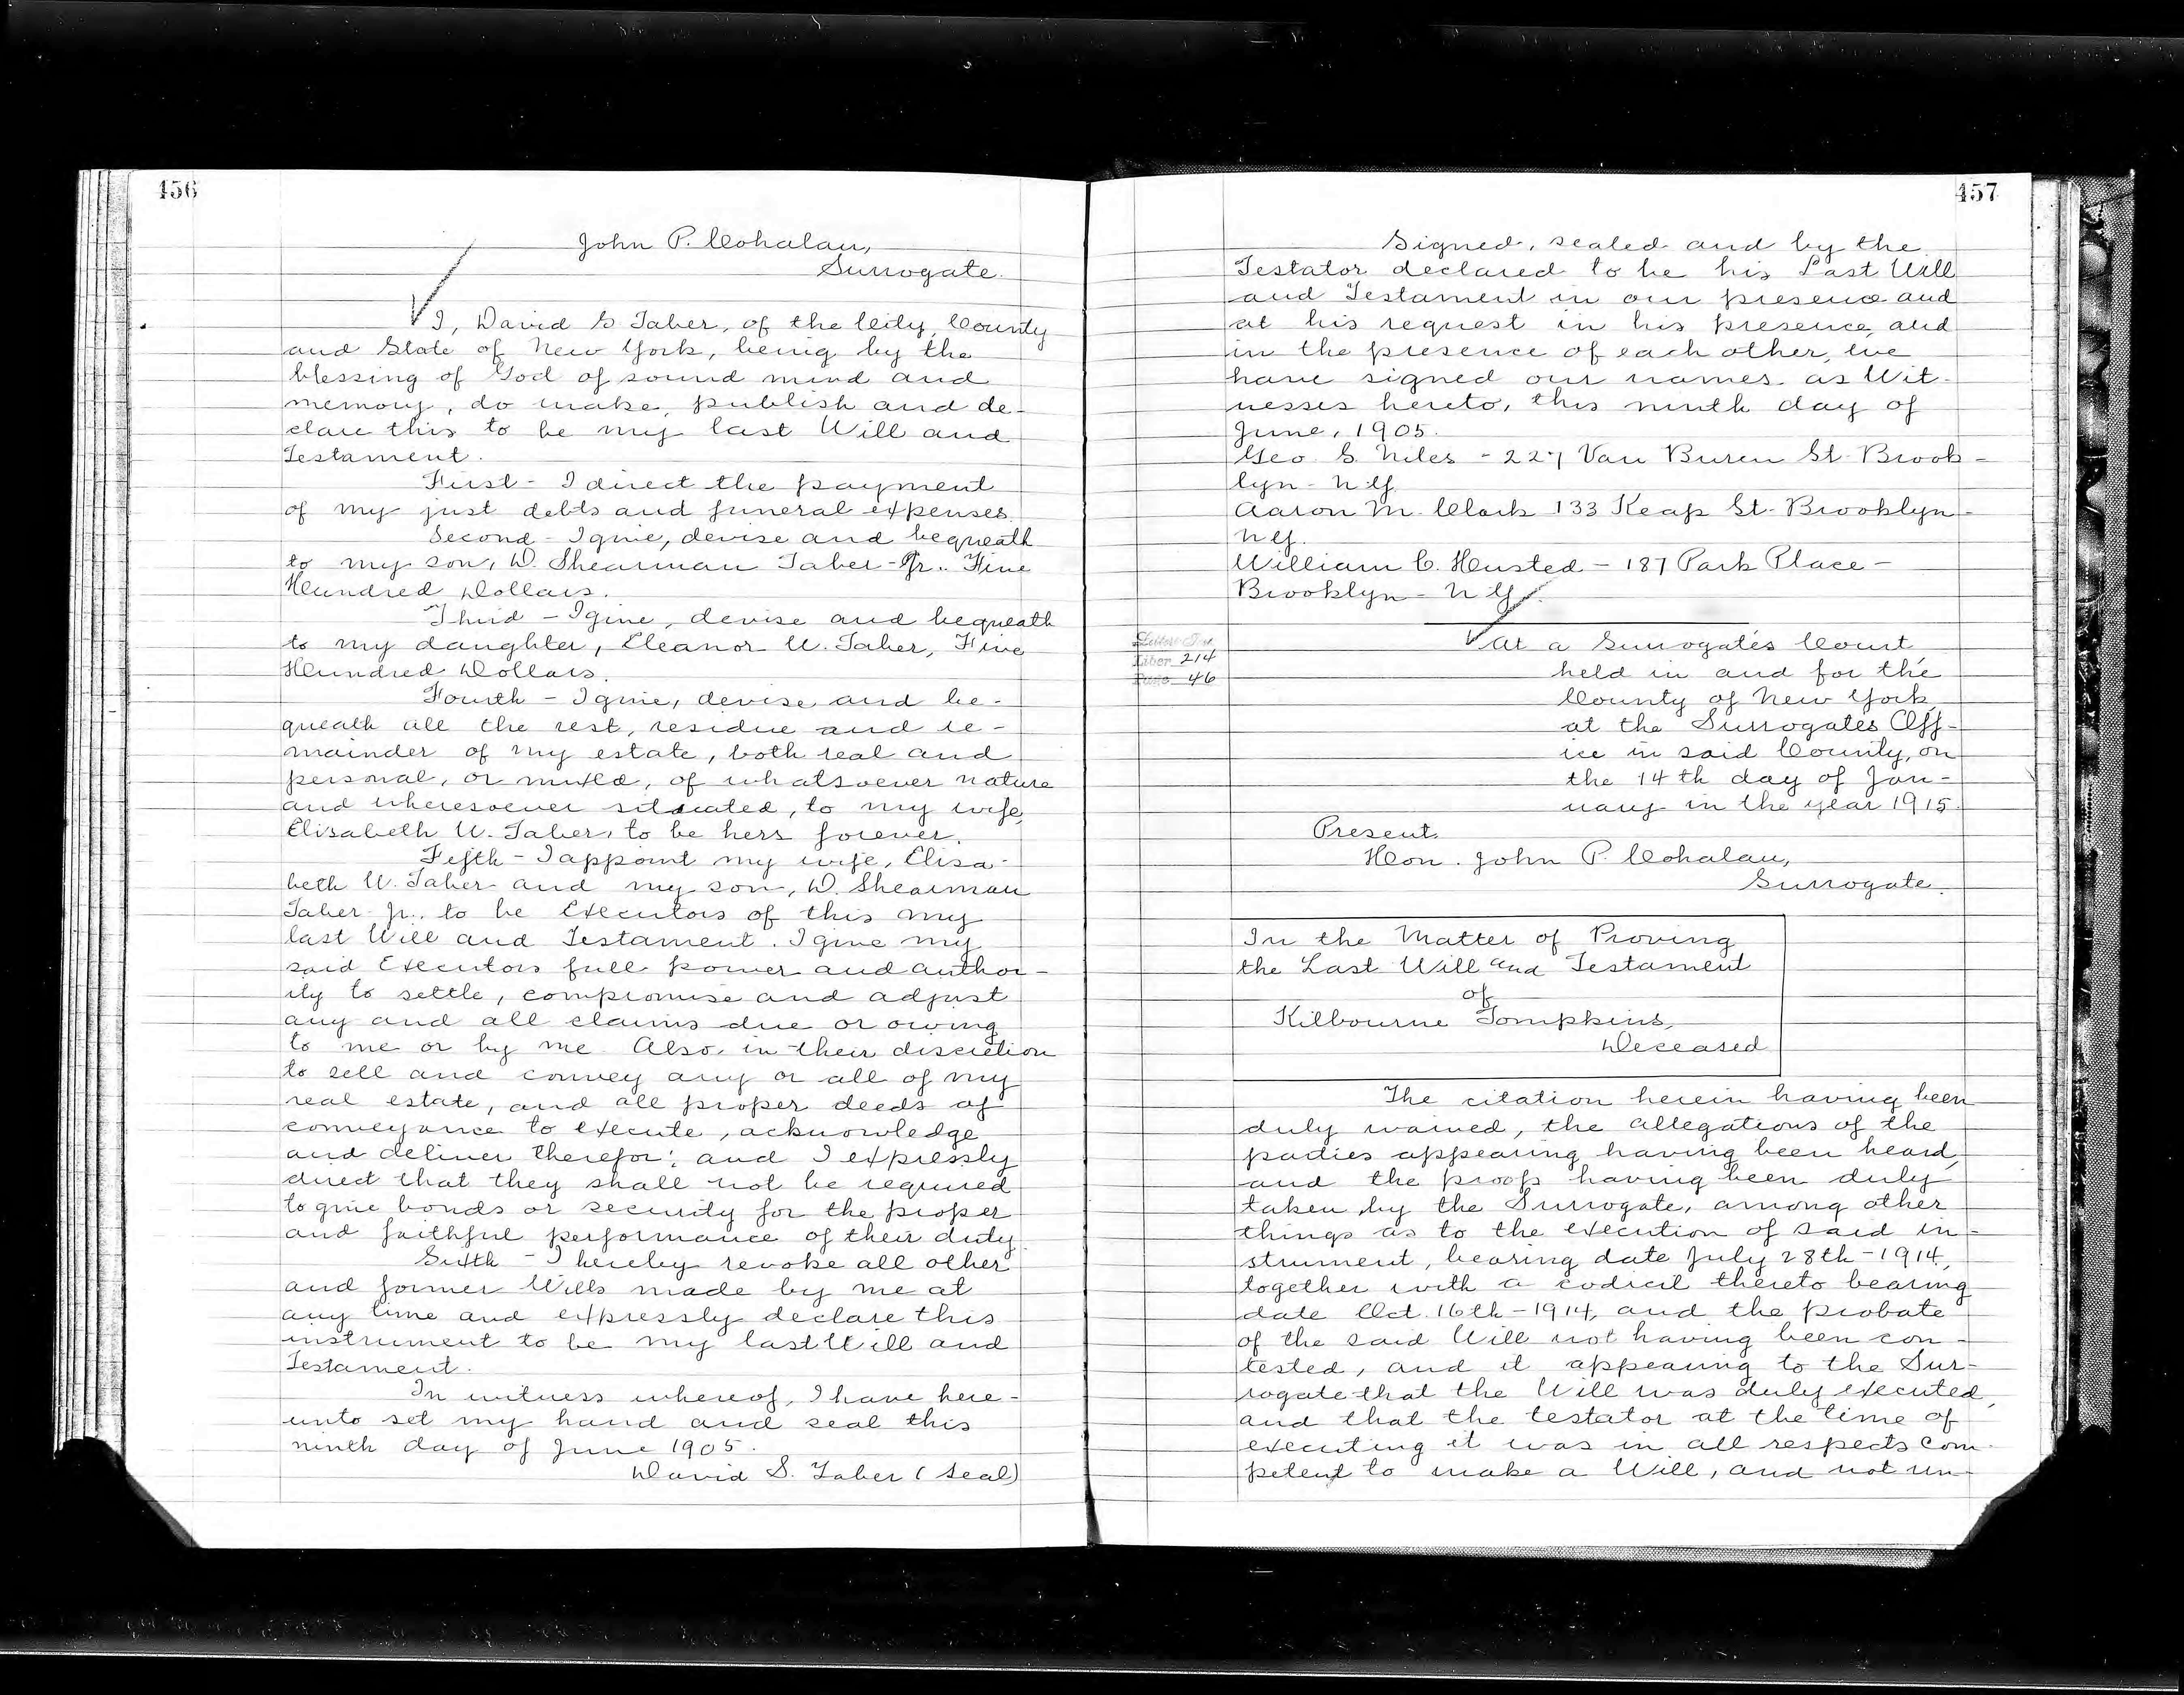 456
John P. Cohalan,
Surrogate.
I, David S Taber, of the City, County
and State of New York, being by the
blessing of God of sound mind and
memory, do make, publish and de-
clare this to be my last Will and
Testament.
First - I direct the payment
of my just debts and funeral expenses.
Second - I give, devise and bequeath
to my son, D. Shearman Taber - Jr. Five
Hundred Dollars.
Third - I give, devise and bequeath
to my daughter, Eleanor U. Taber, Five
Hundred Dollars.
Fourth - I give, devise and be-
queath all the rest, residue and re-
mainder of my estate, both real and
personal, or mixed, of whatsoever nature
and wheresoever situated, to my wife,
Elisabeth U. Taber, to be hers forever.
Fifth - I appoint my wife, Elisa-
beth U. Taber and my son, D. Shearman
Taber Jr., to be Executors of this my
last Will and Testament. I give my
said Executors full power and author-
ity to settle, compromise and adjust
any and all claims due or owing
to me or by me. Also, in their discretion
to sell and convey any or all of my
real estate, and all proper deeds of
conveyance to execute, acknowledge
and deliver therefor; and I expressly
direct that they shall not be required
to give bonds or security for the proper
and faithful performance of their duty.
Sixth - I hereby revoke all other
and former Wills made by me at
any time and expressly declare this
instrument to be my last Will and
Testament.
In witness whereof, I have here-
unto set my hand and seal this
ninth day of June 1905.
David S. Taber (Seal)
457
Signed, sealed and by the
Testator declared to be his Last Will
and Testament in our presence and
at his request in his presence, and
in the presence of each other, we
have signed our names as Wit-
nesses hereto, this ninth day of
June, 1905.
Geo. S. Niles - 227 Van Buren St - Brook-
lyn - N Y.
Aaron M. Clark 133 Keap St. Brooklyn -
N Y.
William C. Husted - 187 Park Place -
Brooklyn - N Y.
Liber 214
Page 46
At a Surrogate's Court,
held in and for the
County of New York,
at the Surrogates Off-
ice in said County, on
the 14th day of Jan-
uary in the year 1915.
Present.
Hon. John P. Cohalan,
Surrogate.
In the Matter of Proving
the Last Will and Testament
of
Kilbourne Tompkins,
Deceased
The citation herein having been
duly waived, the allegations of the
parties appearing having been heard,
and the proofs having been duly
taken by the Surrogate, among other
things as to the execution of said in-
strument, bearing date July 28th - 1914,
together with a codicil thereto bearing
date Oct. 16th - 1914, and the probate
of the said Will not having been con-
tested, and it appearing to the Sur-
rogate that the Will was duly executed,
and that the testator at the time of
executing it was in all respects com-
petent to make a Will, and not un-